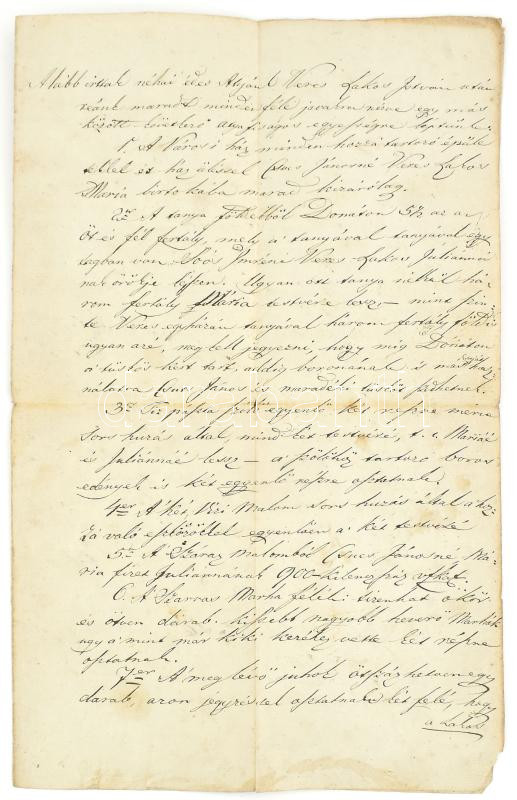 Alább irtak néhai édes Atyánk Veres Lakos István után
reánk maradt minden féle javakra nézve egy más
között következő atyafiságos egyességre léptünk.
1. A Városi ház minden hozzá tartozó épüle
tekkel és ház hellyel Csucs Jánosné Veres Lakos
Mária birtokába marad kizárólag.
2or A tanya földekből Donáton 5½ az az
öt és fél fertály, mely a tanyával tanyával egy
tagban van Soos Imréné Veres Lakos Juliánná
nak örökje légyen. Ugyan ott tanya nélkül há
rom fertály Mária testvéré lesz, – mint szin
te Veres egyházán tanyával három fertály föld is
ugyan azé, meg kell jegyezni, hogy míg Donáton
a tüstös kert tart, addig boronának is
János is maradéki tüstöt szedhetnek.
3or Tiz paszta szőlő egyenlő két részre menve
Sors huzás által, mind két testvéré, t. i. Máriáé
és Juliánnáé lessz – a szőlőhöz tartozó boros
edények is két egyenlő részre osztatnak.
4er A két Vizi Malom sors huzás által a hoz
zá való eszközökkel egyenlően a két testvéré
5ör A Száraz malomból Csucs Jánosné Má-
ria fizet Juliannának 900 kilencz száz vftot.
6. A Szarvas Marha féléki tizenhat ökör
és ötven darab kissebb nagyobb heverő Marhák
ugy a mint már kiki kezéhez vette két részre
osztatnak.
7er A meglévő juhok ötszázhetvenegy
darab, azon jegyzéssel osztatnak két felé, hogy
a Lakos